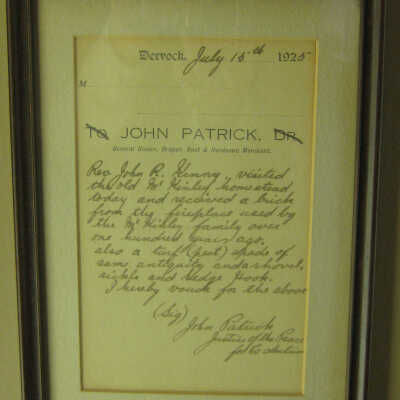 Dervock, July 15th 1925
M
TO JOHN PATRICK, Dr.
General Grocer, Draper, Boot & Hardware Merchant.
Rev. John R. Henry, visited
the old McKinley homestead
today and received a brick
from the fireplace used by
the McKinley family over
one hundred years ago,
also a turf (peat) spade of
same antiquity and a shovel,
sickle and Hedge Hook.
I hereby vouch for the above
(Sig)
John Patrick
Justice of the Peace
for Co Antrim